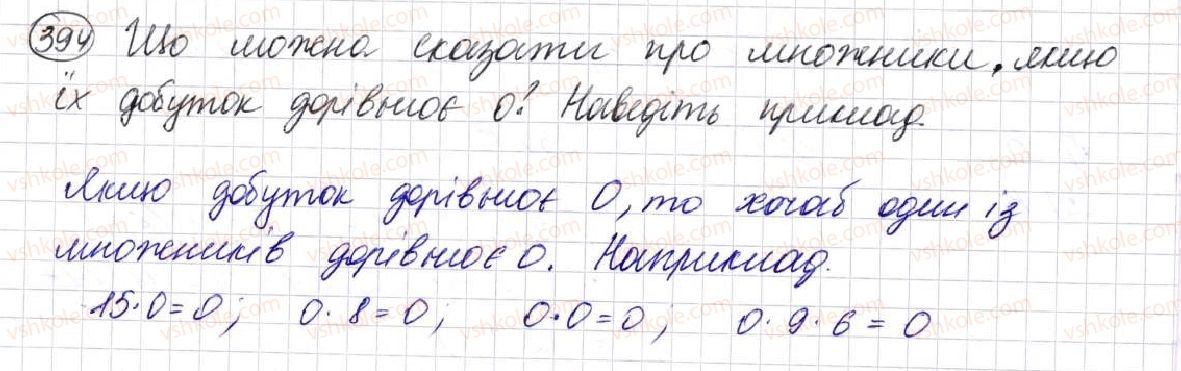 394 Що можна сказати про множники, якщо
їх добуток дорівнює 0? Наведіть приклад.
Якщо добуток дорівнює 0, то хочаб один із
множників дорівнює 0. Наприклад.
15·0=0; 0·8=0; 0·0=0; 0·9·6=0